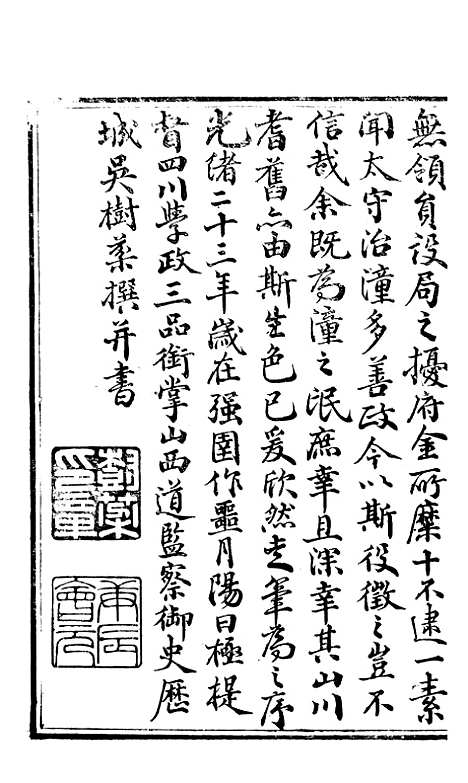 無領員设局之擾府金所縻十不逮一素
闻太守治潼多善政今以斯役徵之豈不
信哉余既為潼之氓庶幸且深幸其山川
耆舊亦由斯生色已爰欣然走筆為之序
光緒二十三年歲在强圉作噩月陽曰極提
督四川學政三品銜掌山西道監察御史歷
城吴樹棻撰并書
樹棻印章